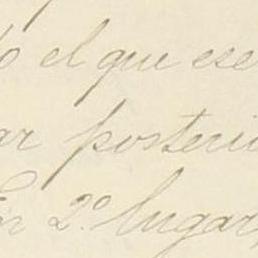 el que ese
ar posterio
En 2º lugar,